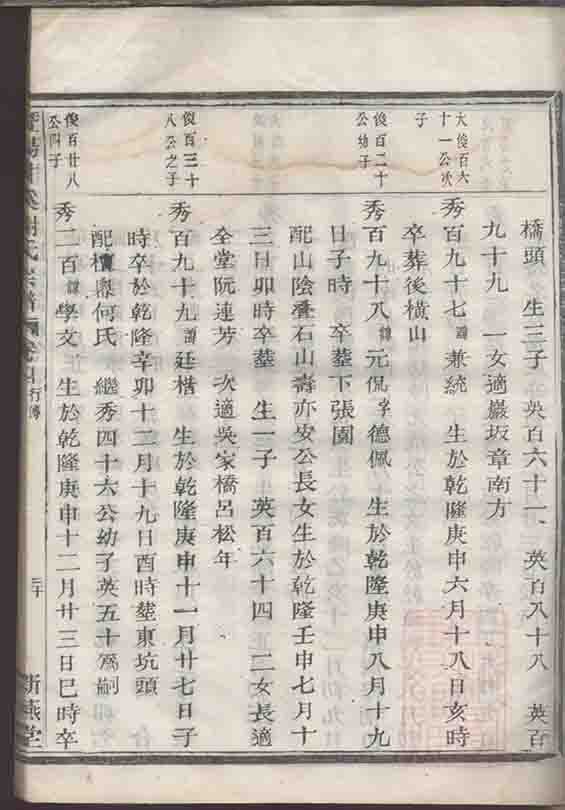 橋頭 生三子 英百六十一 英百八十八 英百
九十九 一女適巖坂章南方
大俊百六
十一公次
子
秀百九十七 諱兼統 生於乾隆庚申六月十八日亥時
卒葬後橫山
俊百二十
公幼子
秀百九十八 諱元侃字德佩 生於乾隆庚申八月十九
日子時 卒塟下張園
配山陰疊石山壽亦安公長女生於乾隆壬申七月十
三日卯時卒塟 生一子 英百六十四 二女長適
全堂阮連芳 次適吳家橋呂松年
俊百三十
八公之子
秀百九十九 諱廷楷 生於乾隆庚申十一月廿七日子
時卒於乾隆辛卯十二月十九日酉時塟東坑頭
配 何氏 繼秀四十六公幼子英五十為嗣
俊百廿八
公四子
秀二百 諱學文 生於乾隆庚申十二月廿三日巳時卒
氏宗譜 卷四 行傳
三十